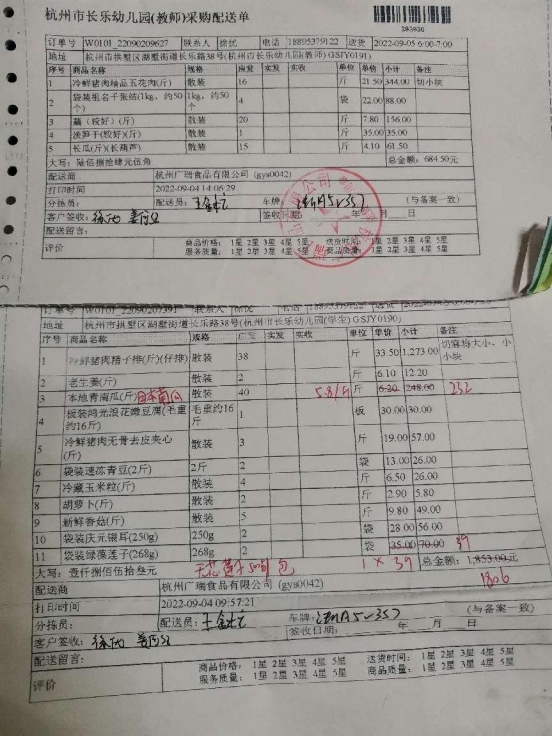 杭州市长乐幼儿园(教师)采购配送单
293930
订单号 W0101_22090209627 联系人 徐优 电话 18895379122 送货 2022-09-05 6:00-7:00
地址 杭州市拱墅区湖墅街道长乐路38号(杭州市长乐幼儿园(教师) GSJY0191)
序号 商品名称 规格 应发 实发 实收 单位 单价 小计 备注
1 冷鲜猪肉精品五花肉(斤) 散装 16 斤 21.50 344.00 切小块
2 袋装祖名千张结(1kg，约50个) 1kg，约50个 4 袋 22.00 88.00
3 藕（较好）(斤) 散装 20 斤 7.80 156.00
4 淡笋干(较好)(斤) 散装 1 斤 35.00 35.00
5 长瓜(斤)(长葫芦) 散装 15 斤 4.10 61.50
大写：陆佰捌拾肆元伍角 总金额：684.50元
配送商 杭州广瑞食品有限公司 (gys0042)
打印时间 2022-09-04 14:06:29
分拣员： 配送员： 车牌：浙A5V357 (与备案一致)
客户签收： 签收日期： 年 月 日
配送留言：
评价 商品价格： 1星 2星 3星 4星 5星 送货时间： 1星 2星 3星 4星 5星
服务质量： 1星 2星 3星 4星 5星 商品质量： 1星 2星 3星 4星 5星
订单号 W0101_22090207391 联系人 徐优 电话 18895379122 送货
地址 杭州市拱墅区湖墅街道长乐路38号(杭州市长乐幼儿园(学生) GSJY0190)
序号 商品名称 规格 应发 实发 实收 单位 单价 小计 备注
1 冷鲜猪肉精子排(斤)(仔排) 散装 38 斤 33.50 1,273.00 切麻将大小，小小块
2 老生姜(斤) 散装 2 斤 6.10 12.20
3 本地青南瓜(斤) 日本南瓜 散装 40 5.8/斤 斤 6.20 248.00 232
4 板装鸿光浪花嫩豆腐(毛重约16斤) 毛重约16斤 1 板 30.00 30.00
5 冷鲜猪肉无骨去皮夹心(斤) 散装 3 斤 19.00 57.00
6 袋装速冻青豆(2斤) 2斤 2 袋 13.00 26.00
7 冷藏玉米粒(斤) 散装 4 斤 6.50 26.00
8 胡萝卜(斤) 散装 2 斤 2.90 5.80
9 新鲜香菇(斤) 散装 5 斤 9.80 49.00
10 袋装庆元银耳(250g) 250g 2 袋 28.00 56.00
11 袋装绿葆莲子(268g) 268g 2 袋 35.00 70.00 39
大写：壹仟捌佰伍拾叁元 包 1×39 总金额：1,853.00元
1806
配送商 杭州广瑞食品有限公司 (gys0042)
打印时间 2022-09-04 09:57:21
分拣员： 配送员： 车牌：浙A5V357 (与备案一致)
客户签收： 签收日期： 年 月 日
配送留言：
评价 商品价格： 1星 2星 3星 4星 5星 送货时间： 1星 2星 3星 4星 5星
服务质量： 1星 2星 3星 4星 5星 商品质量： 1星 2星 3星 4星 5星